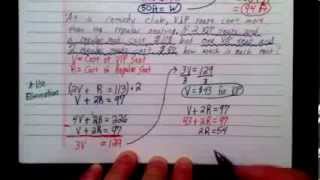 50H = W
At a comedy club, VIP seats cost more
than the regular seating. If 2 VIP seats and
a regular seat cost $113 but one VIP seat and
2 regular seats cost $97 how much is each seat?
V = Cost of VIP Seat
R = Cost of Regular Seat
* Use
Elimination
(2V + R = 113) • 2
V + 2R = 97
4V + 2R = 226
V + 2R = 97
3V = 129
3V = 129
3 3
V = $43 for VIP
V + 2R = 97
43 + 2R = 97
2R = 54